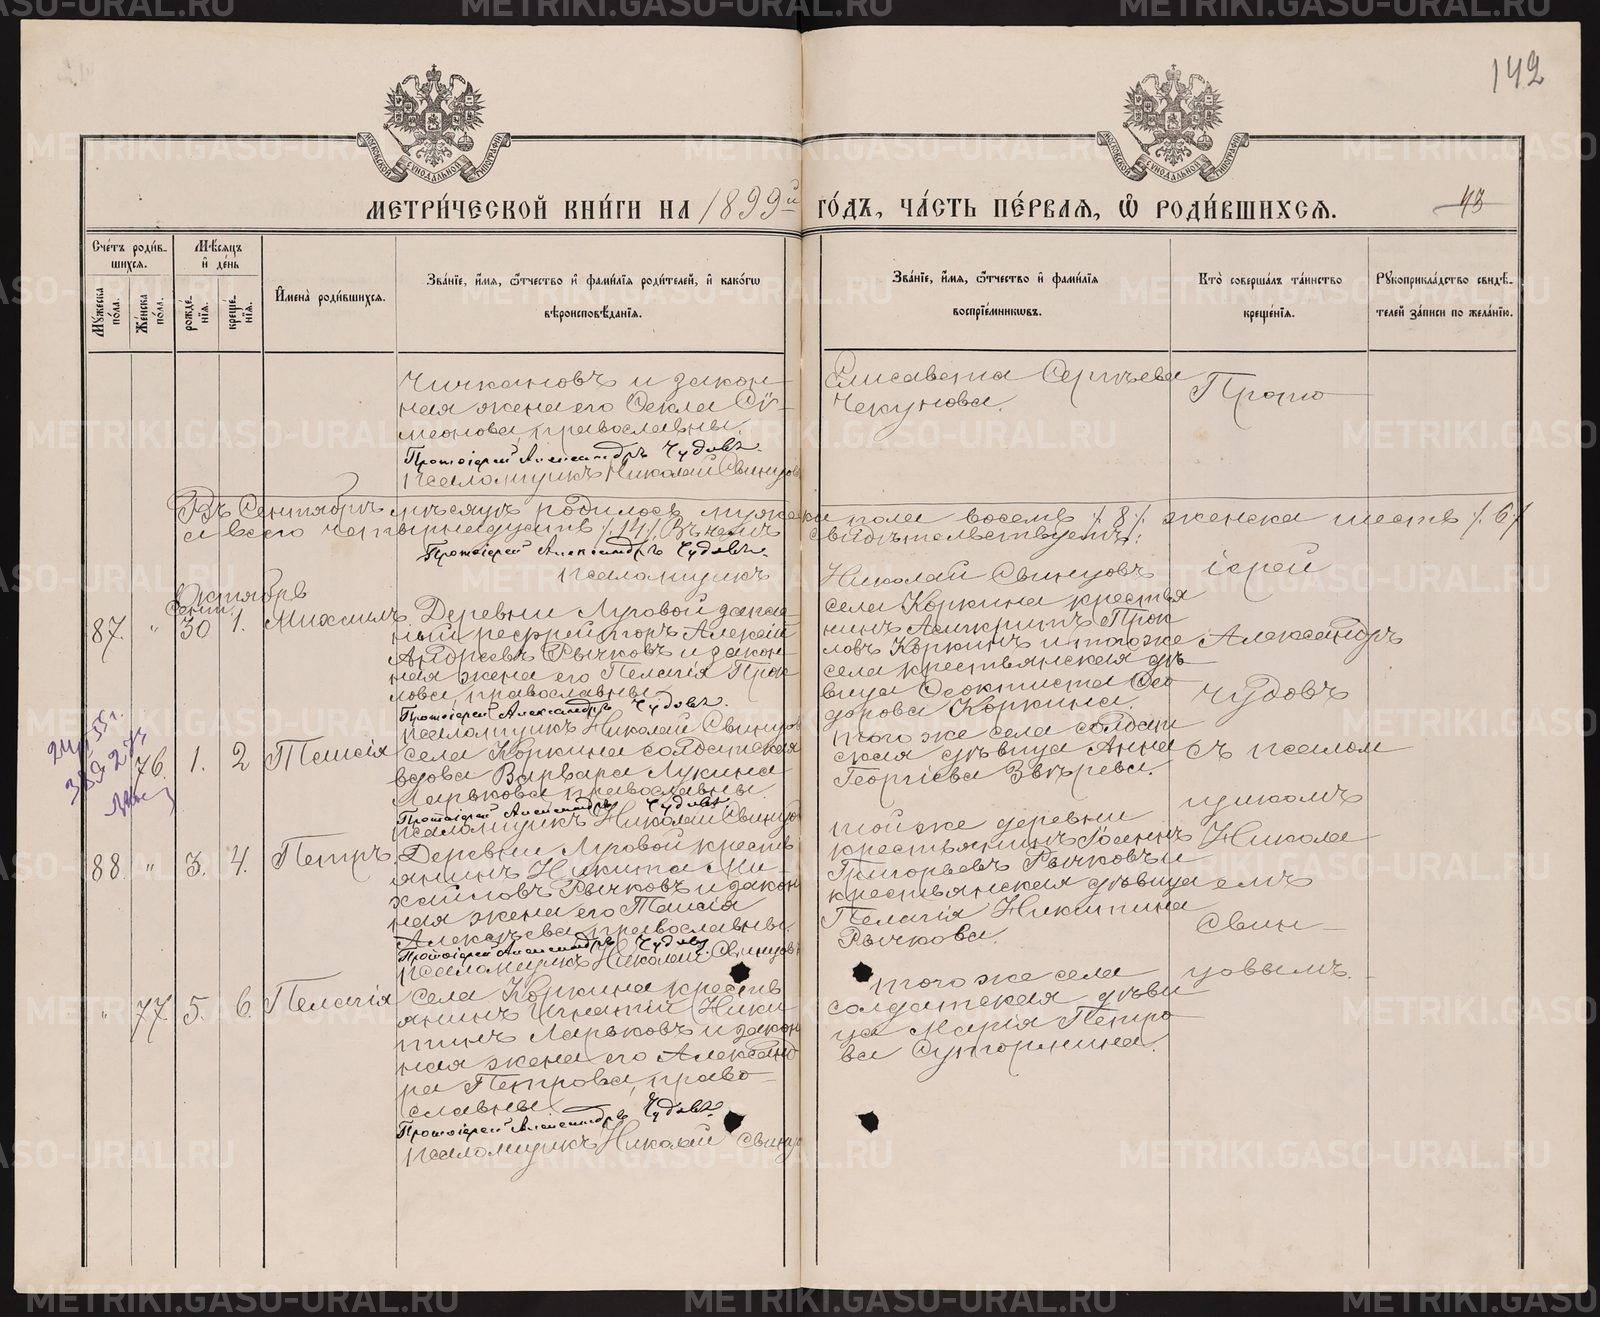 142
МЕТРИ́ЧЕСКОЙ КНИ́ГИ НА 1899й ГО́ДЪ, ЧА́СТЬ ПЕ́РВАЯ, Ѽ РОДИ́ВШИХСЯ.
43
Сче́тъ роди́в-
шихся.
Мꙋ́жеска по́ла.
Же́нска по́ла.
Мѣ́сяцъ
и҆ де́нь
рожде́-
нїя.
креще́-
нїя.
И҆мена̀ роди́вшихся.
Зва́нїе, и҆́мя, ѻ҆́тчество и҆ фами́лїя роди́телей, и҆ како́гѡ
вѣроисповѣ́данїя.
Зва́нїе, и҆́мя, ѻ҆́тчество и҆ фами́лїя
воспрїе́мникѡвъ.
Кто̀ соверша́лъ та́инство
креще́нїя.
Рꙋкоприкла́дство свидѣ́-
телей за́писи по жела́нїю.
Чичкановъ и закон-
ная жена его Ѳекла Сѵ-
меонова, православны.
Протоіерей Александръ Чудовъ.
псаломщикъ Николай Свинцовъ
Елисавета Сергѣева
Чекунова.
Прото
Въ Сентябрѣ мѣсяцѣ родилось мужска пола восемь /8/, женска шесть /6/
а всего четырнадцать /14/, Въ чемъ свидѣтельствуемъ:
Протоіерей Александръ Чудовъ.
псаломщикъ Николай Свинцовъ
Октябрь
87. " Сент. 30 1. Михаилъ.
Деревни Луговой запас-
ный рефрейторъ Алексій
Андреевъ Рычковъ и закон-
ная жена его Пелагія Прок-
лова, православны
Протоіерей Александръ Чудовъ.
псаломщикъ Николай Свинцовъ
села Коркина крестья
нинъ Асикритъ Прок-
ловъ Коркинъ и тогоже
села крестьянская дѣ-
вица Ѳеоктиста Ѳео-
дорова Коркина.
іерей
Александръ
Чудовъ
76. 1. 2 Таисія
села Коркина солдатская
вдова Варвара Лукина
Ларькова православны.
Протоіерей Александръ Чудовъ.
псаломщикъ Николай Свинцовъ
того же села солдат-
ская дѣвица Анна
Георгіева Звѣрева.
съ псалом
щикомъ
88. " 3. 4. Петръ
Деревни Луговой кресть
янинъ Никита Ми-
хаиловъ Рычковъ и закон
ная жена его Таисія
Алексѣева, православны.
Протоіерей Александръ Чудовъ.
псаломщикъ Николай Свинцовъ
той же деревни
крестьянинъ Іоаннъ
Григорьевъ Рычковъ и
крестьянская дѣвица
Пелагія Никитина
Рычкова.
Никола
емъ
Свин-
цовымъ.
" 77. 5. 6. Пелагія
села Коркина кресть
янинъ Игнатій Ники
тинъ Ларьковъ и закон
ная жена его Александ
ра Петрова, право-
славны.
Протоіерей Александръ Чудовъ.
псаломщикъ Николай Свинцо
того же села
солдатская дѣви
ца Марія Петро
ва Сутормина.